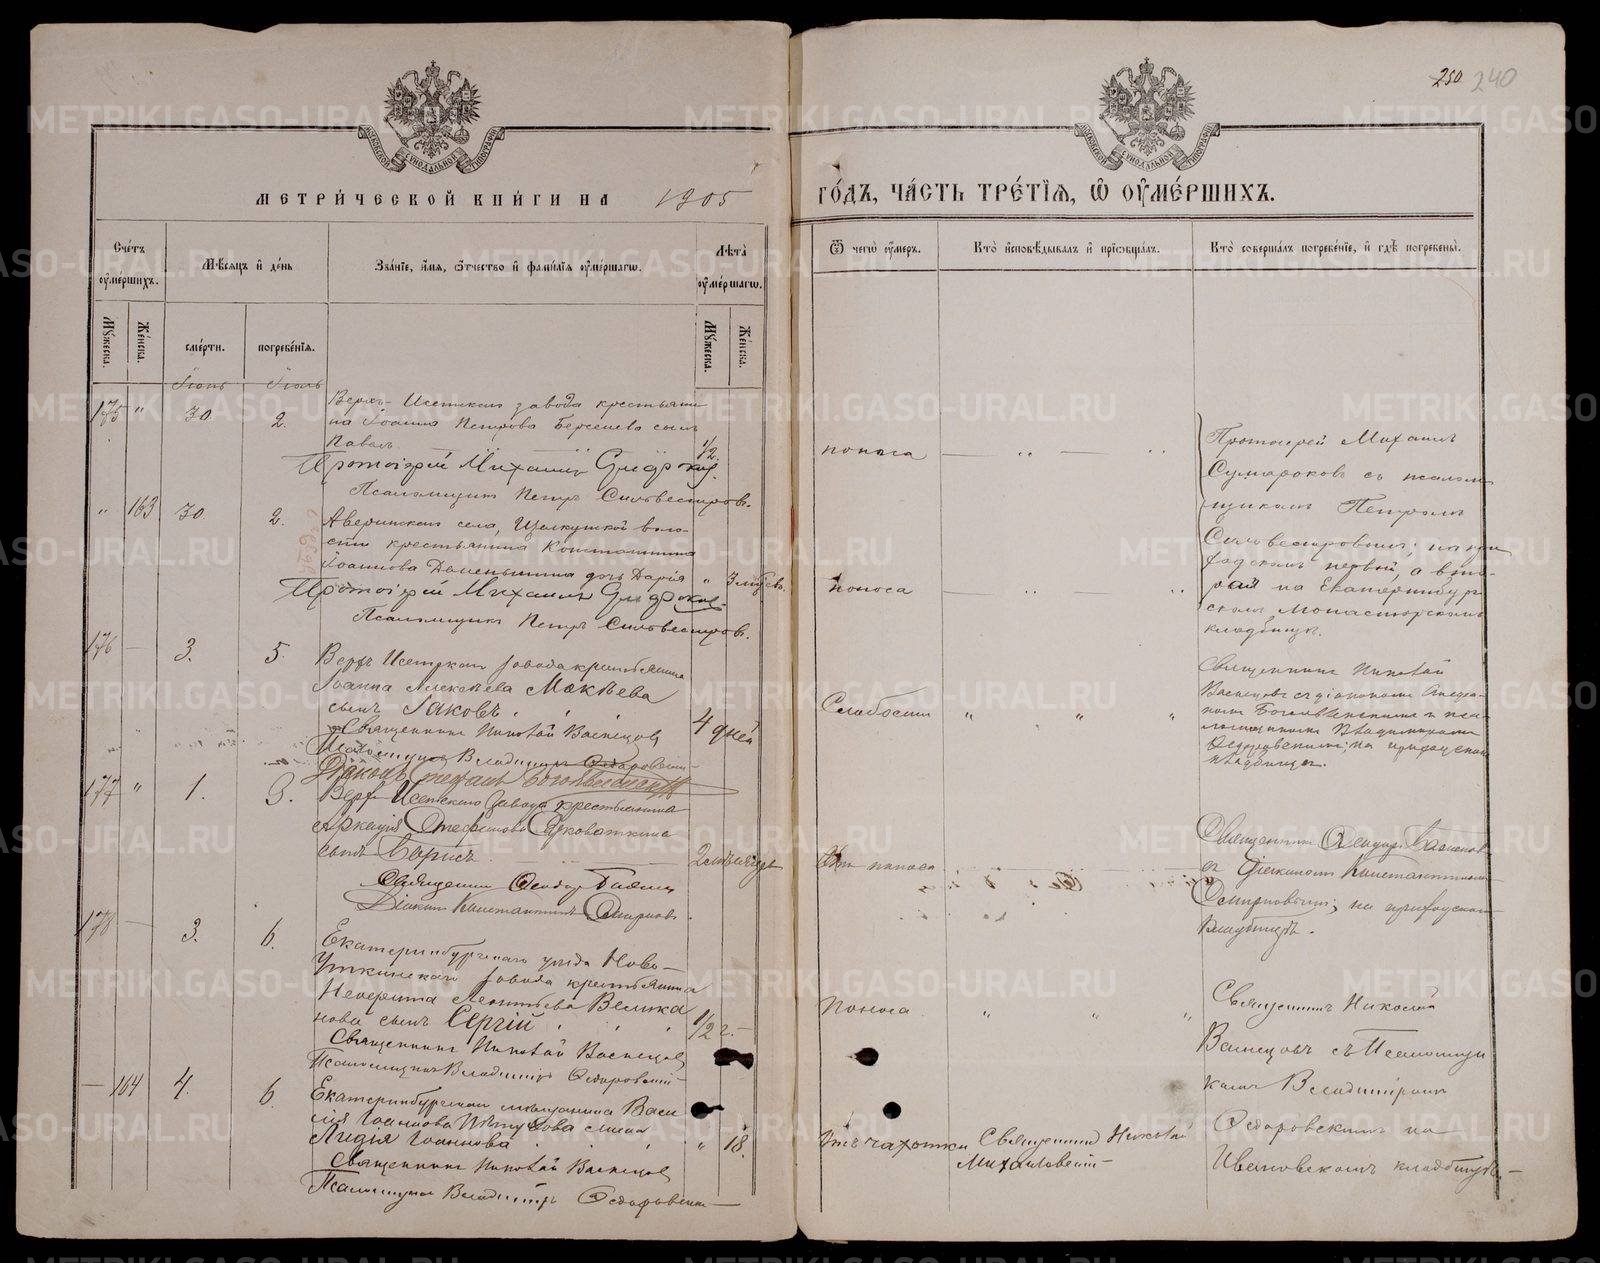 250 240
МОСКОВСКОЙ СУНОДАЛЬНОЙ ТИПОГРАФІИ
МЕТРИ́ЧЕСКОЙ КНИ́ГИ НА 1905
ГО́ДЪ, ЧА́СТЬ ТРЕ́ТІѦ, Ѽ ОУМЕ́РШИХЪ.
Сче́тъ оуме́ршихъ.
Мꙋ́жеска.
Же́нска.
Мѣ́сѧцъ и де́нь
сме́рти.
погребе́нїѧ.
Зва́нїе, и́мѧ, ѻ́тчество и фами́лїѧ оуме́ршагѡ.
Лѣ́та оуме́ршагѡ.
Мꙋ́жеска.
Же́нска.
Ѿ чегѡ̀ оу́меръ.
Кто̀ и҆сповѣ́дывалъ и҆ прїѡбща́лъ.
Кто̀ соверша́лъ погребе́нїе, и҆ гдѣ̀ погребены̀.
Іюнь Іюль
175 " 30 2.
Верхъ-Исетскаго завода крестьяни-
на Іоанна Петрова Берсенева сынъ
Павелъ. 1/2
Протоіерей Михаилъ
Псаломщикъ Петръ Сильвестровъ.
поноса
Протоіерей Михаилъ
Сумароковъ съ псалом-
щикомъ Петромъ
Сильвестровымъ; на при-
ходскомъ первый, а вто-
рая на Екатеринбург-
скомъ Монастырскомъ
кладбищѣ.
" 163 30 2.
Аверинскаго села, Щелкунской воло-
сти крестьянина Константина
Іоаннова дочь Дарія "
Протоіерей Михаилъ
Псаломщикъ Петръ Сильвестровъ.
поноса
176 — 3. 5.
Верхъ Исетскаго завода крестьянина
Іоанна Алексѣева Мокѣева
сынъ Іаковъ 4 дней
Священникъ Николай Васнецовъ
Псаломщикъ Владиміръ Ѳедоровскій
Діаконъ Богоявленскій
Слабости " " "
Священникъ Николай
Васнецовъ съ діакономъ
Богоявленскимъ и пса-
ломщикомъ Владиміромъ
Ѳедоровскимъ; на приходскомъ
кладбищѣ.
177 " 1. 3.
Верхъ Исетскаго завода крестьянина
Аркадія Стефанова
сынъ Борисъ 2 мѣсяца
Священникъ Ѳеодоръ
Діаконъ Константинъ Смирновъ.
Отъ поноса
Священникъ Ѳеодоръ
съ Діакономъ Константиномъ
Смирновымъ; на приходскомъ
кладбищѣ.
178 — 3. 6.
Екатеринбургскаго уѣзда Ново-
Уткинскаго завода крестьянина
Леонтьева Велика
нова сынъ Сергій 1/2 г.—
Священникъ Николай Васнецовъ
Псаломщикъ Владиміръ Ѳедоровскій
Поноса " " "
Священникъ Николай
Васнецовъ съ Псаломщи
комъ Владиміромъ
Ѳедоровскимъ на
Ивановскомъ кладбищѣ.—
— 164 4. 6.
Екатеринбургскаго мѣщанина Васи
лія Іоаннова
Лидія Іоаннова " 18.
Священникъ Николай Васнецовъ
Псаломщикъ Владиміръ Ѳедоровскій
Отъ чахотки Священникъ Николай
Михайловскій
METRIKI.GASO-URAL.RU